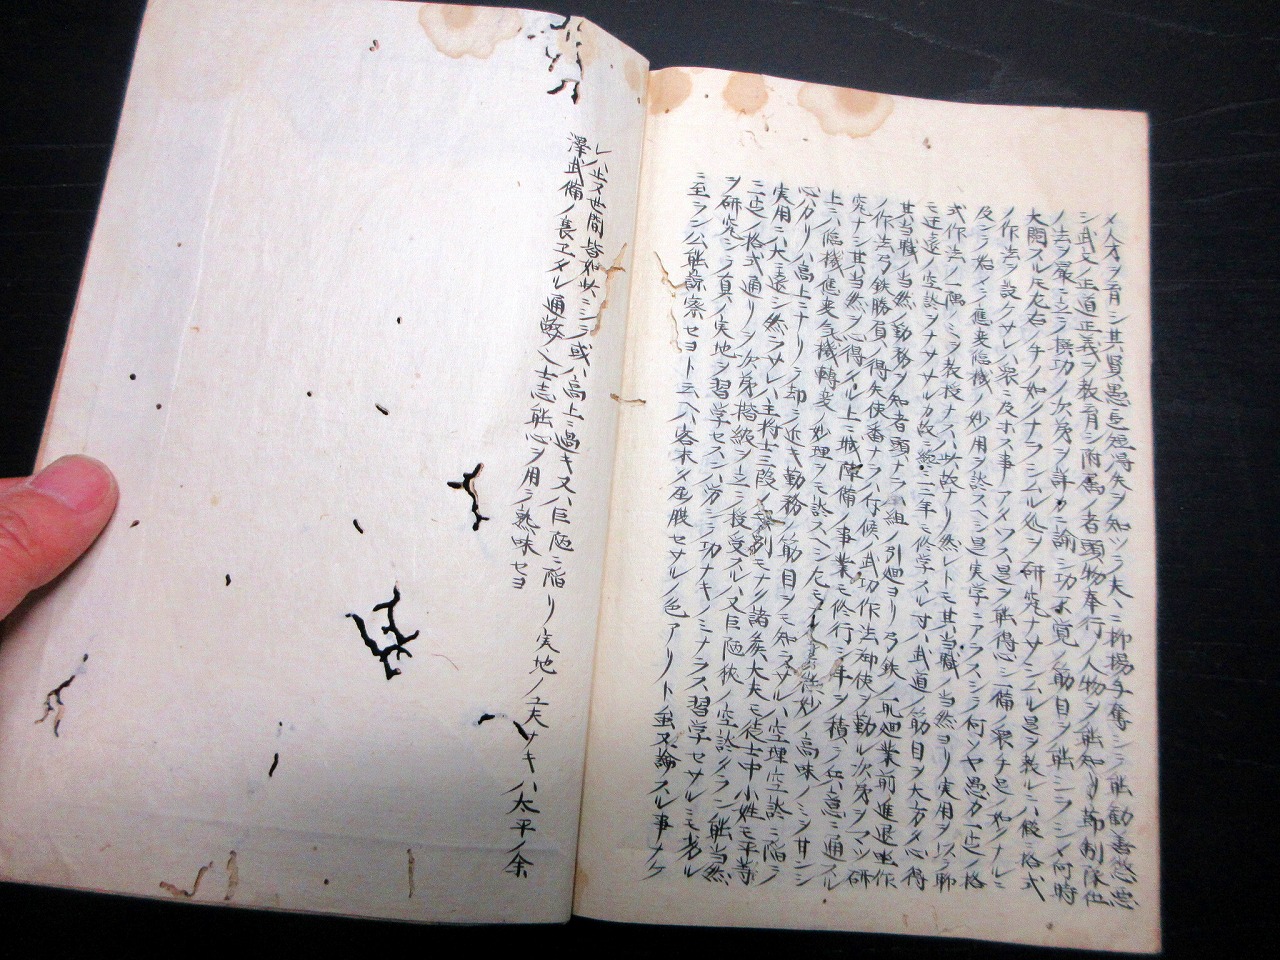 メ人才ヲ育シ其賢愚長短得失ヲ知ツラ夫ニ抑揚予奪シラ能勧善懲悪
シ武文ノ正道正義ヲ教育シ附属ノ者頭物奉行ノ人物ヲ能知リ節制隊伍
ノ法ヲ厳ニ立ラ撰功ノ次第ヲ詳カニ論シ功ノ筋目ヲ能シラシメ何時
大閲スル左右ノ手ノ如クナラシムル処ヲ研究ナサシムル是ヲ教ルニハ備ニ格式
ノ作法ヲ設ケサレハ衆ニ及ホス事アタハス是ヲ能得心シ備ノ衆手足ノ如クナルニ
及ンラ始ノラ應変臨機ノ妙用ヲ談スヘシ是実学ニアラスシラ何ソヤ愚カ一止ノ格
式作法ノ一隅ニラ教授ナス此故ナリ然レトモ其当職ノ当然ヨリ実用ヲ以ラ聊
モ迂遠ノ空談ヲナサヽルカ故ニ縦二三年モ修学スル寸ハ武道ノ筋目ヲ大方ハ心得
其当職ノ当然ノ勤務ヲ知者頭ナラハ組ノ引廻ヨリ弓鉄ノ業前進退
ノ作法弓鉄勝負ノ得失使番ナラハ行候ノ武功作法御使ヲ勤ル次第ヲマツ研
究ナシ其当然ヲ心得タル上ニ職陣備ノ事業モ修行シ年ヲ積ミ意ニ通スル
上ニハ臨機應変気機轉変ノ妙理ヲモ談スヘシ高味ノミヲ甘ンシ
心カリハ高上ニナリラ却ラ近キ勤務ノ筋目ヲモ知ラサルハ空理空談ニ陥ラ
実用ニハ大ニ遠シ然ラサレハ主将士三段ノ差別モナク諸矦大夫モ徒士中小姓モ平等
ニ一止ノ格式通リヲ次第階級ヲ立ラ授受スルハ又巨陋狭ノ空談タラン能当然
ヲ研究シラ真ノ実地ヲ習学セスンハ労シラ功ナキノミナラス習学セサルニモ劣ル
ニ至ラン公能諒察セヨト云ヘハ客未タ屈膜セサルノ色アリト虽又論スル事ナケ
レハ止ヌ世間皆如此ニシラ或ハ高上ニ過キ又ハ巨陋ニ陥リ実地ノ工夫ナキハ太平ノ余
澤武備ノ衰ヱタル通弊ヘ士志能心ヲ用ラ熟味セヨ